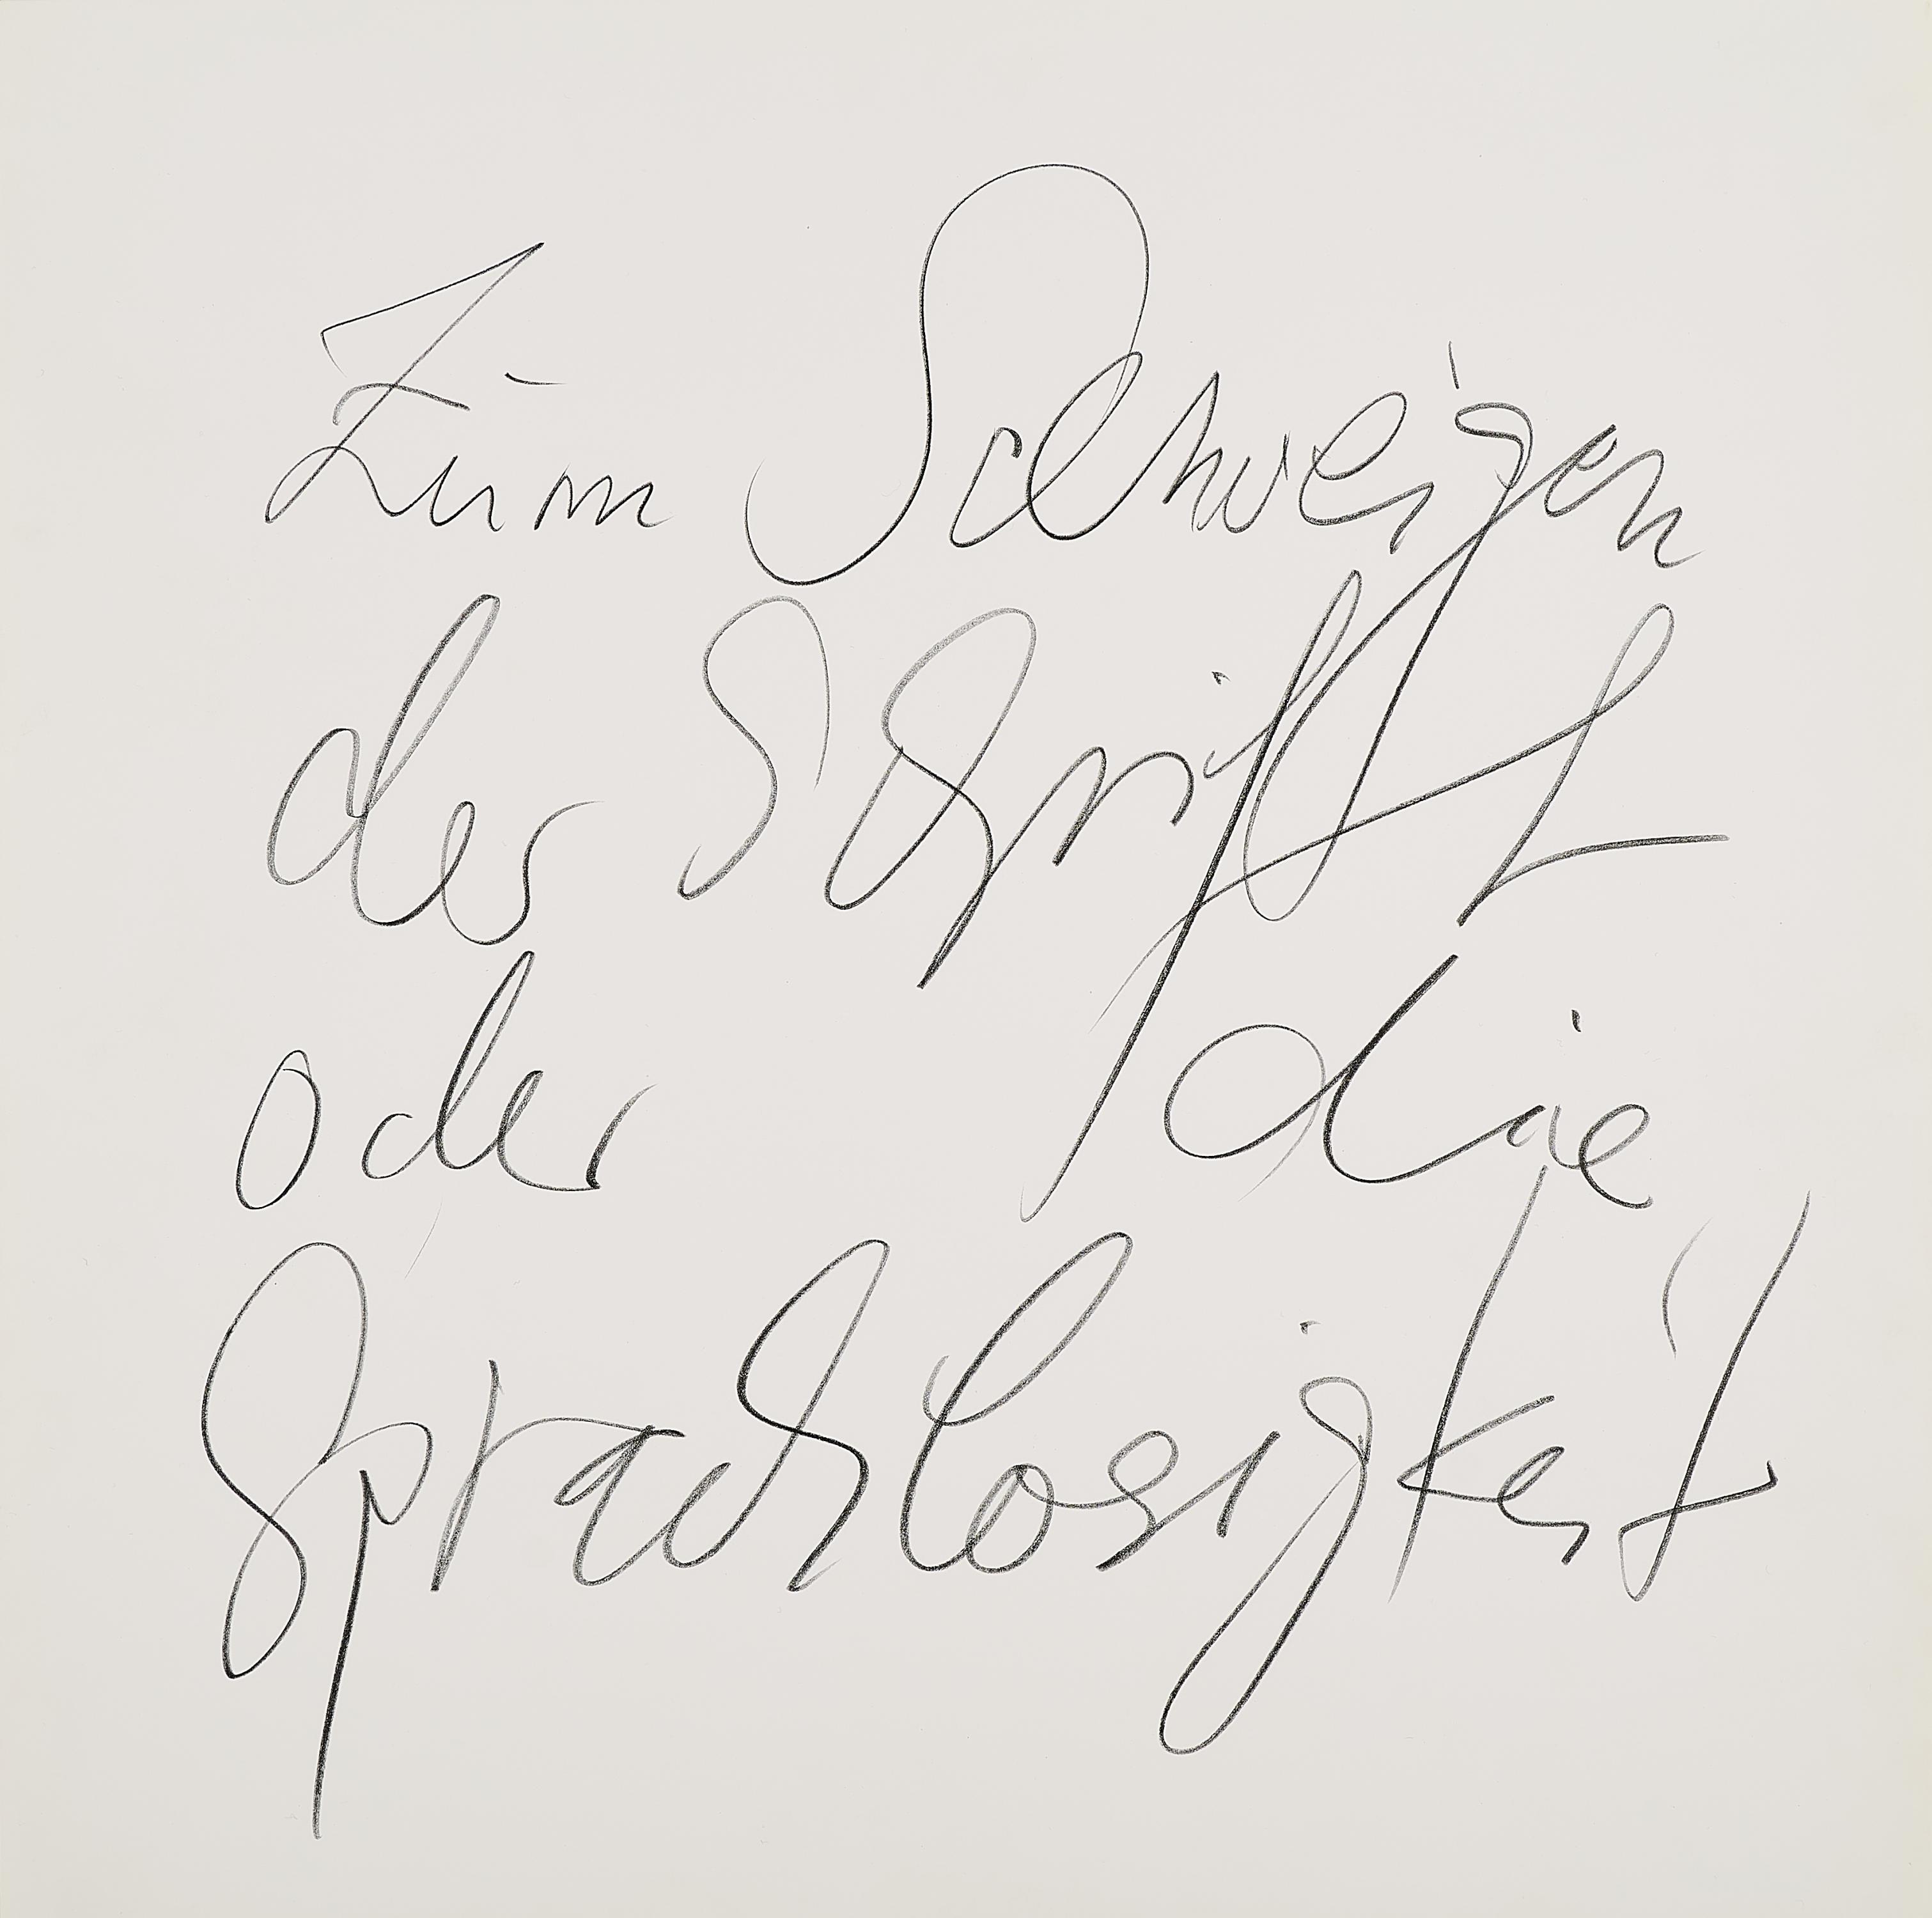 Zum Schweigen
der Schrift
oder die
Sprachlosigkeit